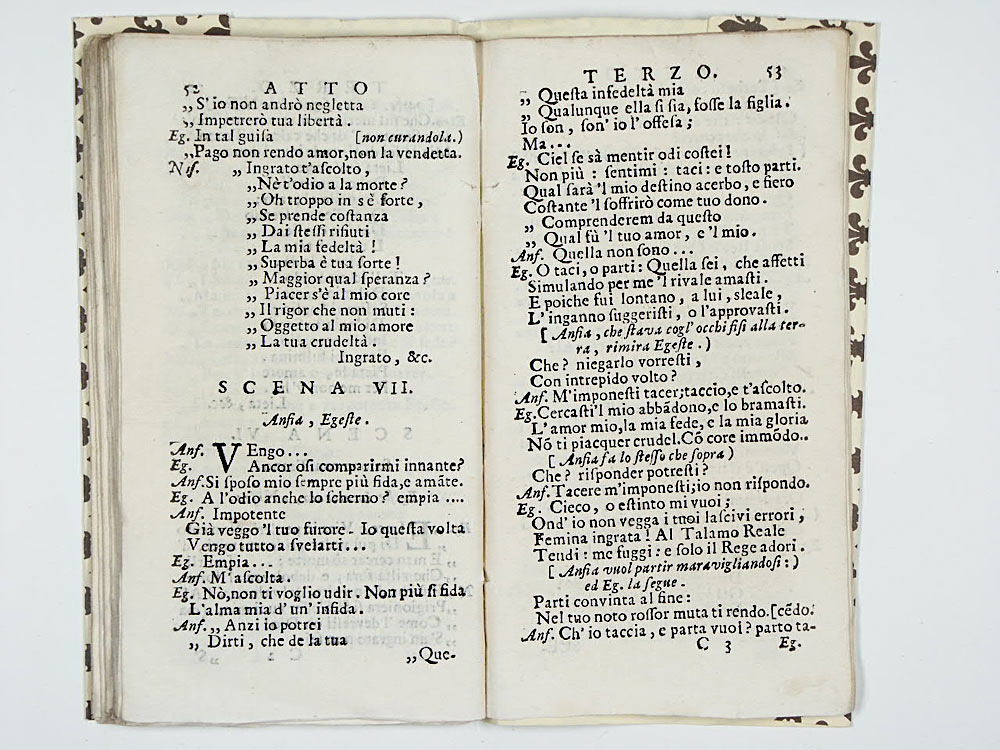 52 ATTO
„S' io non andrò negletta
„Impetrerò tua libertà.
Eg. In tal guisa [non curandola.)
„Pago non rendo amor,non la vendetta.
Nis. „Ingrato t'ascolto,
„Nè t'odio a la morte?
„Oh troppo in sè forte,
„Se prende costanza
„Dai stessi rifiuti
„La mia fedeltà!
„Superba è tua sorte!
„Maggior qual speranza?
„Piacer s'è al mio core
„Il rigor che non muti:
„Oggetto al mio amore
„La tua crudeltà.
Ingrato, &c.
SCENA VII.
Ansia, Egeste.
Ans. VEngo...
Eg. Ancor osi comparirmi innante?
Ans.Si sposo mio sempre più fida,e amãte.
Eg. A l'odio anche lo scherno? empia ....
Ans. Impotente
Già veggo 'l tuo furore. Io questa volta
Vengo tutto a svelarti...
Eg. Empia...
Ans. M'ascolta.
Eg. Nò,non ti voglio udir. Non più si fida
L'alma mia d' un' infida.
Ans. „Anzi io potrei
„Dirti, che de la tua
„Que-
TERZO. 53
„Questa infedeltà mia
„Qualunque ella si sia, fosse la figlia.
Io son, son' io l' offesa;
Ma...
Eg. Ciel se sà mentir odi costei!
Non più: sentimi: taci: e tosto parti.
Qual sarà 'l mio destino acerbo, e fiero
Costante 'l soffrirò come tuo dono.
„Comprenderem da questo
„Qual fù 'l tuo amor, e 'l mio.
Ans. Quella non sono...
Eg. O taci, o parti: Quella sei, che affetti
Simulando per me 'l rivale amasti.
E poiche fui lontano, a lui, sleale,
L' inganno suggeristi, o l'approvasti.
[ Ansia, che stava cogl' occhi fisi alla ter-
ra, rimira Egeste.)
Che? niegarlo vorresti,
Con intrepido volto?
Ans. M'imponesti tacer;taccio,e t'ascolto.
Eg.Cercasti'l mio abbãdono,e lo bramasti.
L' amor mio,la mia fede, e la mia gloria
Nõ ti piacquer crudel.Cõ core immõdo..
[ Ansia fa lo stesso che sopra)
Che? risponder potresti?
Ans.Tacere m'imponesti;io non rispondo.
Eg. Cieco, o estinto mi vuoi;
Ond' io non vegga i tuoi lascivi errori,
Femina ingrata! Al Talamo Reale
Tendi: me fuggi: e solo il Rege adori.
[ Ansia vuol partir maravigliandosi:)
ed Eg. la segue.
Parti convinta al fine:
Nel tuo noto rossor muta ti rendo.[cẽdo.
Ans. Ch' io taccia, e parta vuoi? parto ta-
C 3 Eg.